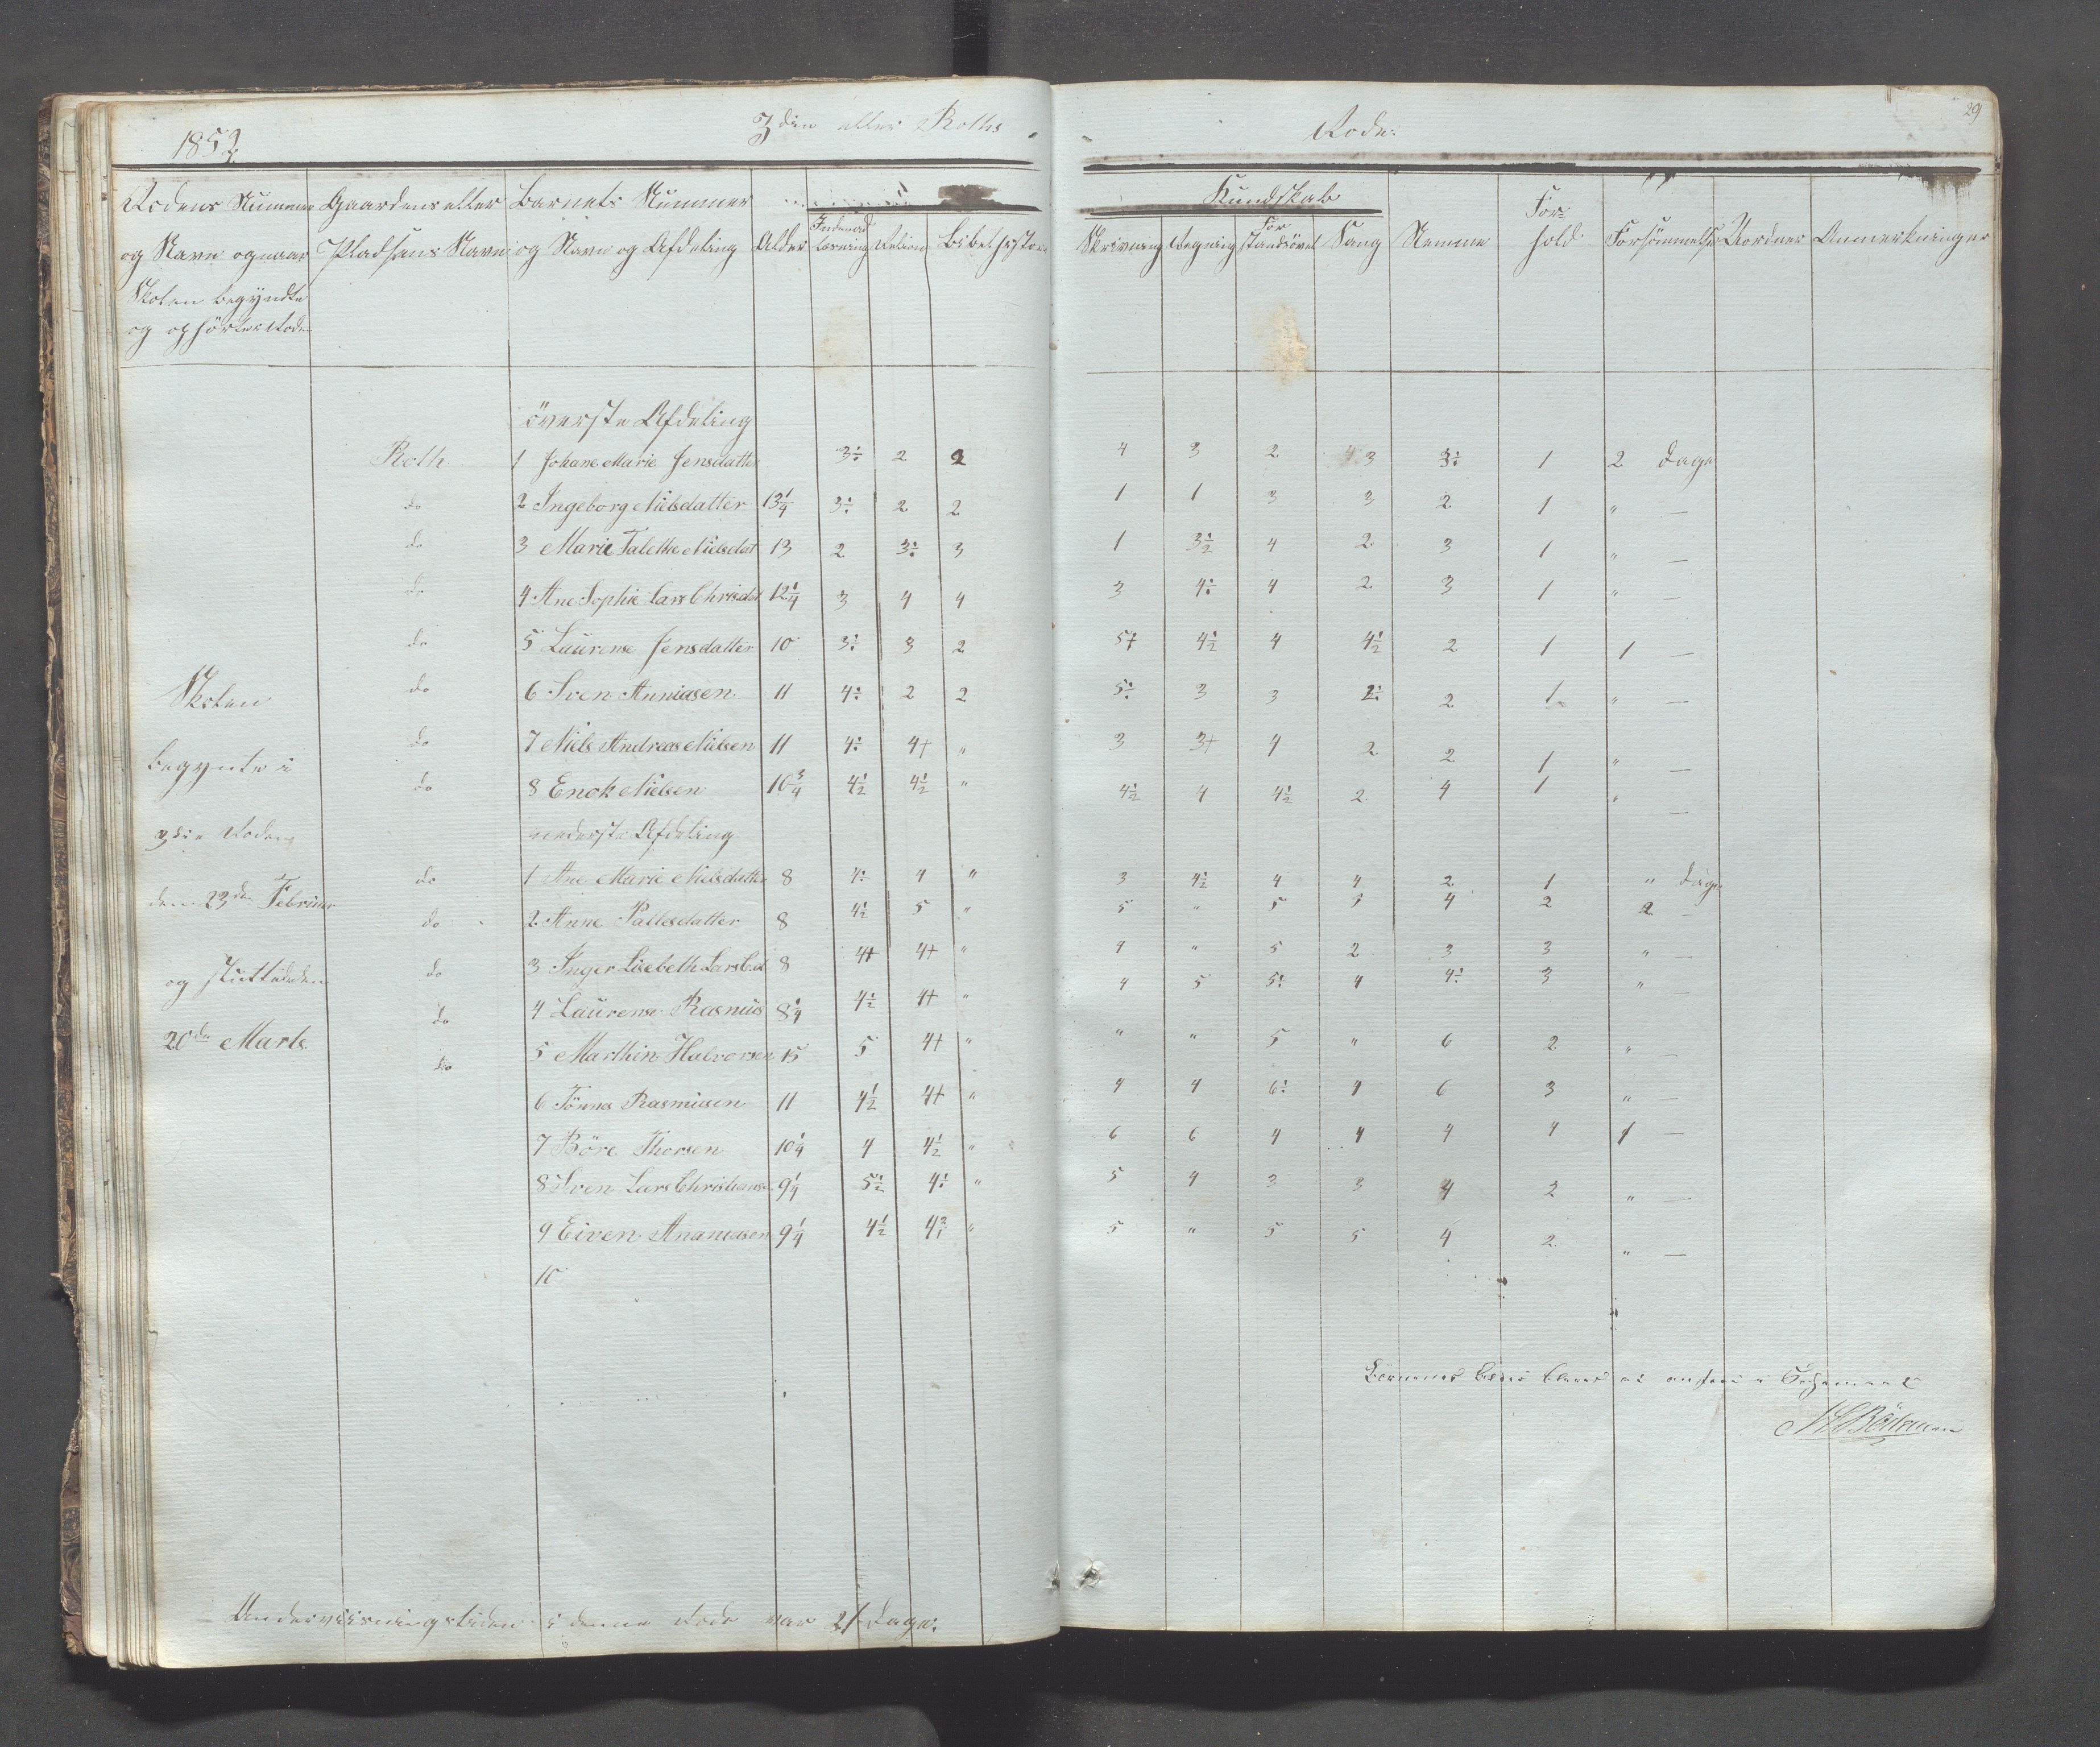 1852 3die eller Roths Rode: 29
Rodens Nummer Gaardens eller Barnets Nummer Kundskab For-
og Navn og naar Pladsens Navn og Navn og Afdeling Alder Indenad Læsning Relion Bibelhistorie Skrivning Regning For standsövel Sang Nemme hold Forsömmelse Uordner Anmerkninger
Skolen begyndte
og ophörte Rode
överste Afdeling
Roth 1 Johane Marie Jensdatter 3½ 2 2 4 3 2 3 3½ 1 2 Dage
do 2 Ingeborg Nielsdatter 13¼ 3½ 2 2 1 1 3 3 2 1 " —
do 3 Marie Talethe Nielsdat 13 2 3½ 3 1 3½ 4 2 3 1 " —
do 4 Ane Sophie Lars Chrisdat 12¼ 3 4 4 3 4½ 4 2 3 1 " —
do 5 Laurense Jensdatter 10 3½ 3 2 5+ 4½ 4 4½ 2 1 1 —
Skolen do 6 Sven Ananiasen 11 4½ 2 2 5½ 3 3 2½ 2 1 " —
begynte i do 7 Niels Andreas Nielsen 11 4½ 4+ " 3 3+ 4 2 2 1 " —
do 8 Enok Nielsen 10¾ 4½ 4½ " 4½ 4 4½ 2 4 1 " —
3die Roden nederste Afdeling
do 1 Ane Marie Nielsdatter 8 4½ 4 " 3 4½ 4 4 2 1 " Dage
den 23de Februar do 2 Anne Pallesdatter 8 4½ 5 " 5 " 5 5 4 2 2 —
og sluttede den do 3 Inger Lisebeth Lars 8 4+ 4+ " 4 " 5 2 3 3 " —
do 4 Laurense Rasmus 8¼ 4½ 4+ " 4 5 5½ 4 4½ 3 " —
20de Marts do 5 Marthin Halvorsen 15 5 4+ " " " 5 " 6 2 " —
6 Tönnes Rasmusen 11 4½ 4+ " 4 4 6½ 4 6 3 " —
7 Böre Thorsen 10¼ 4 4½ " 6 6 4 4 4 4 1 —
8 Sven Lars Christians 9¼ 5½ 4½ " 5 4 3 3 4 2 " —
9 Eiven Ananiasen 9¼ 4½ 4½ " 5 " 5 5 4 2 " —
10
Börnenes ei i
Underviisningstiden i denne Rode var 21 Dage: